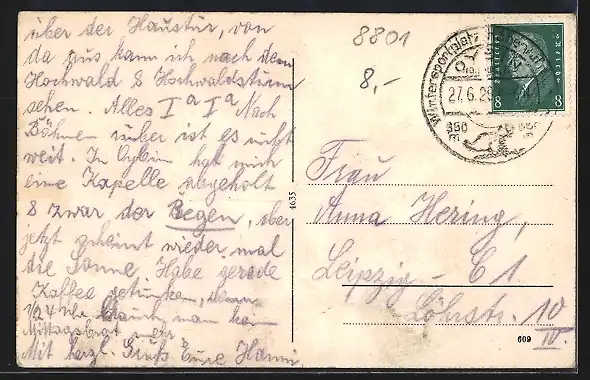 über der Haustür, von
da aus kann ich nach dem
Hochwald & Hochwaldsturm
sehen. Alles Ia Ia Nach
Böhmen rüber ist es nicht
weit. In Oybin hat mich
eine Kapelle abgeholt
& zwar der Regen, aber
jetzt scheint wieder mal
die Sonne. Habe gerade
Kaffee getrunken, denn
1/2 4 Uhr braucht man kein
Mittagsbrot mehr
Mit herzl. Gruß Eure Hanni
8801
8,-
Wintersportplatz
27.6.29
850
Deutsches Reich
8 8
4635
Frau
Anna Hering,
Leipzig - C 1
Löhrstr. 10
IV.
609